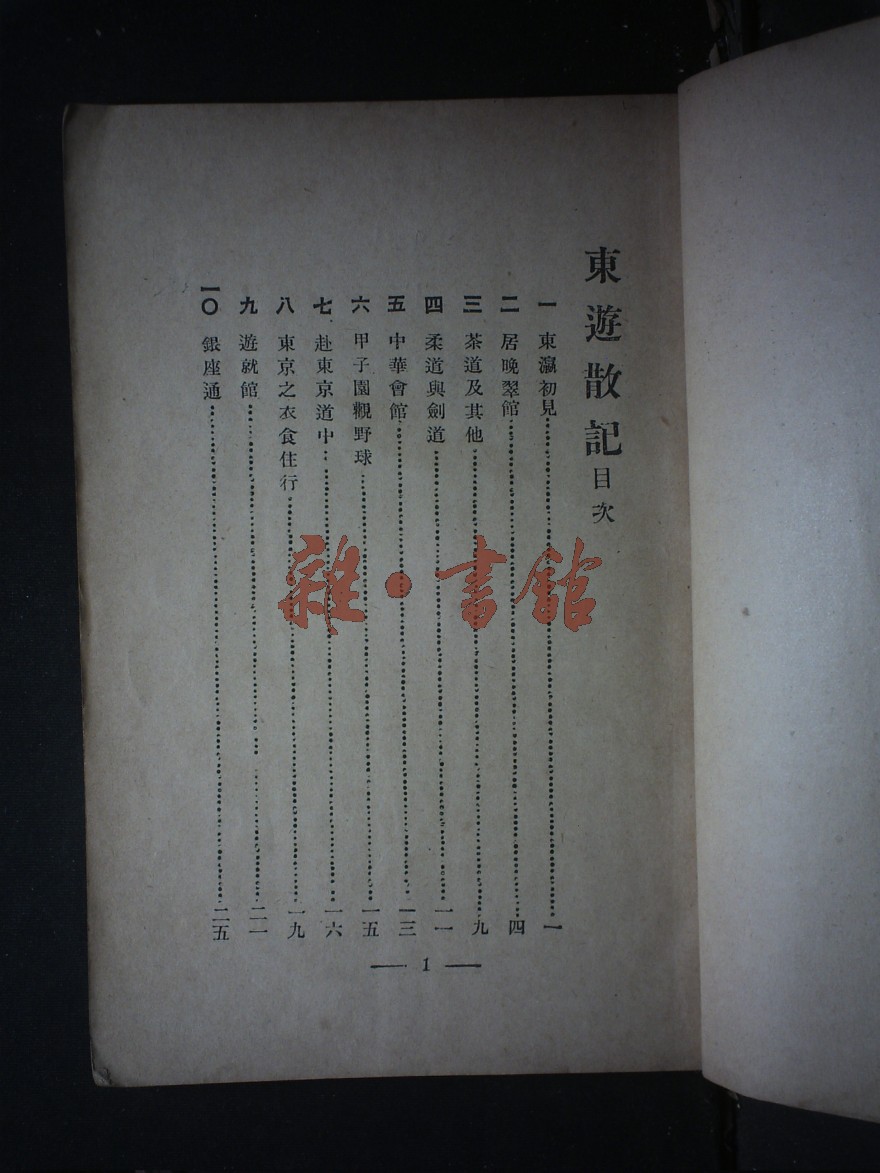 東遊散記目次
一 東瀛初見 一
二 居晚翠館 四
三 茶道及其他 九
四 柔道與劍道 一一
五 中華會館 一三
六 甲子園觀野球 一五
七 赴東京道中 一六
八 東京之衣食住行 一九
九 遊就館 二一
一〇 銀座通 二五
— 1 —
雜·書館